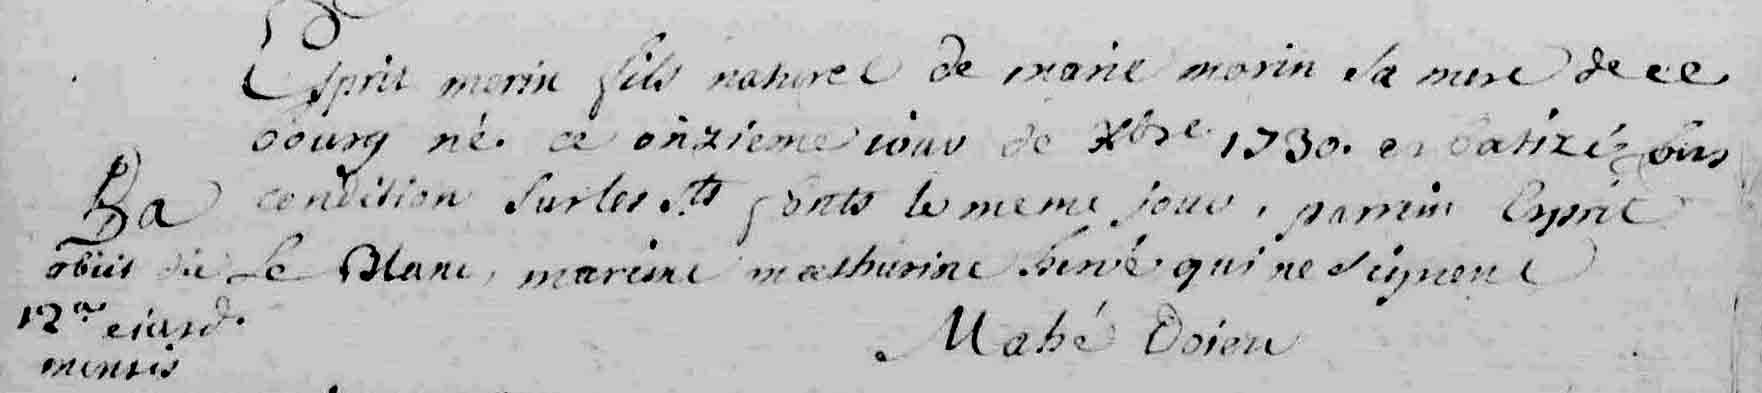 Esprit morin fils naturel de marie morin sa mere de ce
bourg né. ce onzieme jour de Xbre. 1730. et batizé sous
condition sur les sts fonts le meme jour, parrain Esprit
Le Blanc, mareine mathurine hervé qui ne signent
Mahé Doien
Ba
obiit die
12a ejusd.
mensis